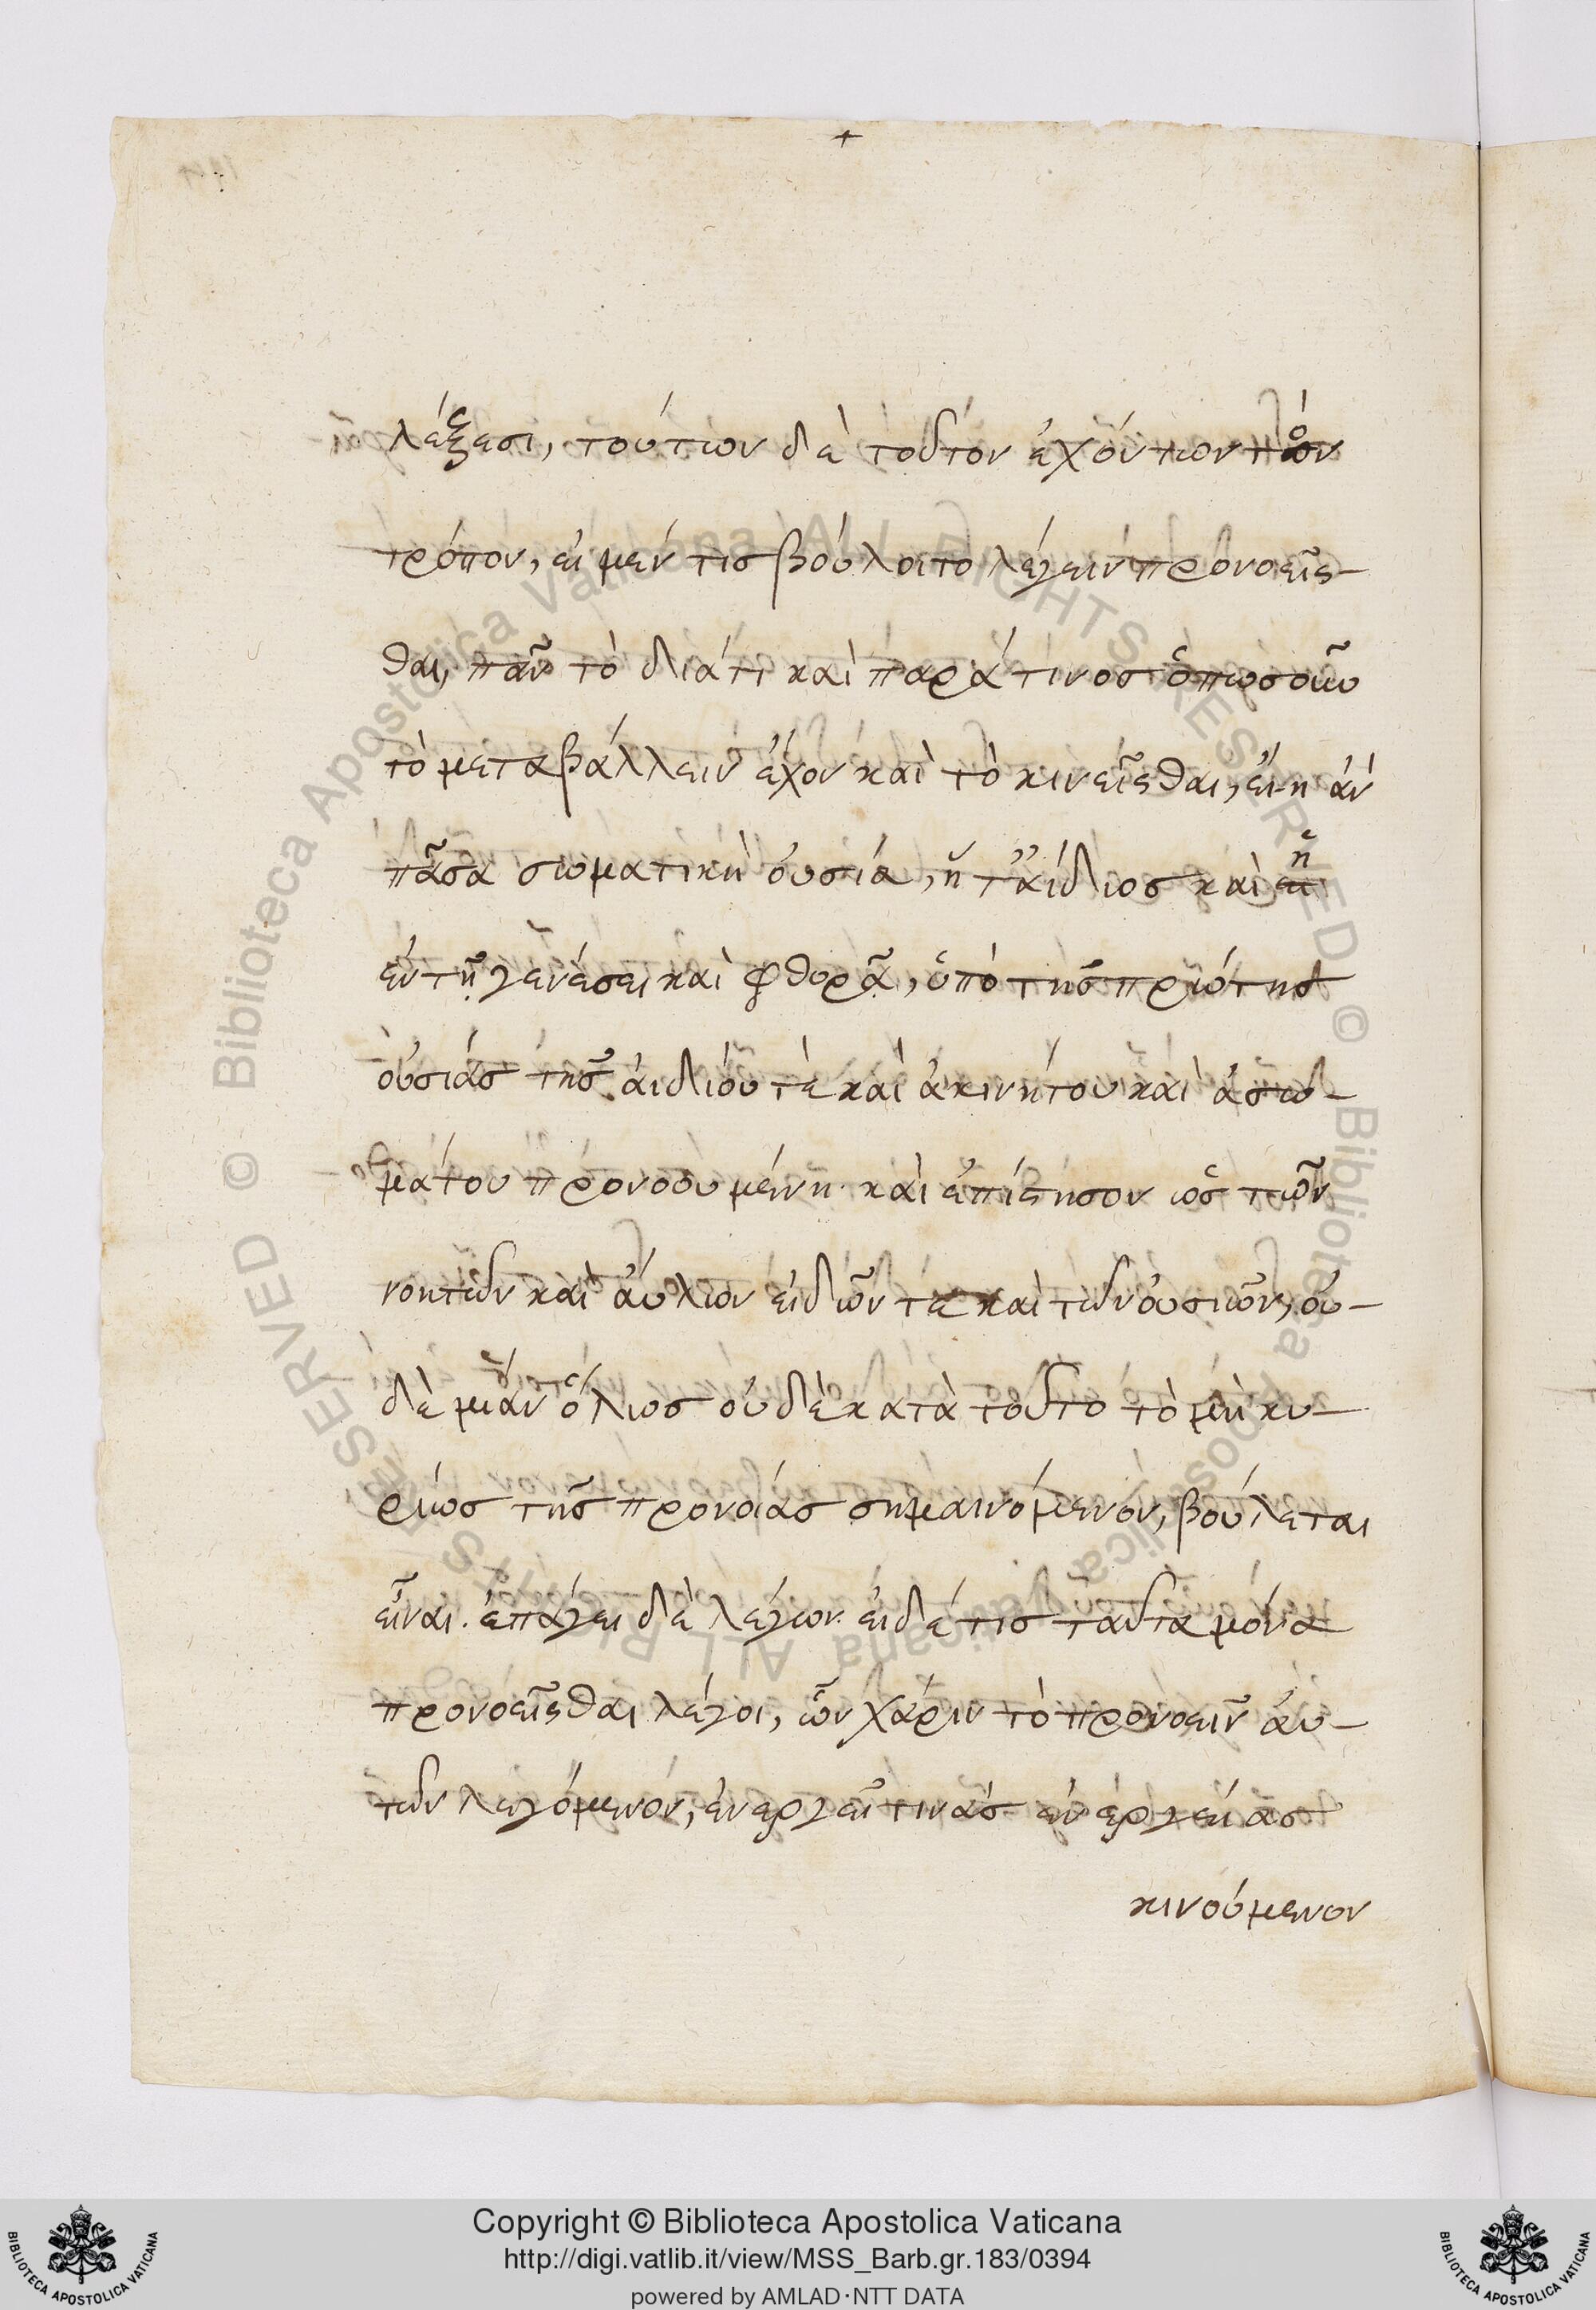 λέξεσι, τούτων δὲ τοῦτον ἐχόντων τὸν
τρόπον, εἰ μέν τις βούλοιτο λέγειν προνοεῖσ-
θαι, πᾶν τὸ διάτι καὶ παρά τινος ὁπωσοῦν
τὸ μεταβάλλειν ἔχον καὶ τὸ κινεῖσθαι, εἴη ἀν
πᾶσα σωματικὴ οὐσία, ἥ τ' ἀΐδιος καὶ ἡ
ἐν τῇ γενέσει καὶ φθορᾷ, ὑπὸ τῆς πρώτης
οὐσίας τῆς ἀιδίου τὲ καὶ ἀκινήτου καὶ ἀσω-
μάτου προνοουμένη. καὶ ἐπίστησον ὡς τῶν
νοητῶν καὶ ἀύλων εἰδῶν τὲ καὶ τῶν οὐσιῶν, οὐ-
δὲ μίαν ὅλως οὐδὲ κατὰ τοῦτο τὸ μὴ κυ-
ρίως τῆς προνοίας σημαινόμενον, βούλεται
εἶναι. ἐπάγει δὲ λέγων. εἰ δέ τις ταῦτα μόνα
προνοεῖσθαι λέγοι, ὧν χάριν τὸ προνοεῖν αὐ-
τῶν λεγόμενον, ἐνεργεῖ τινὰς ἐνεργείας
κινούμενον
Copyright © Biblioteca Apostolica Vaticana
http://digi.vatlib.it/view/MSS_Barb.gr.183/0394
powered by AMLAD·NTT DATA